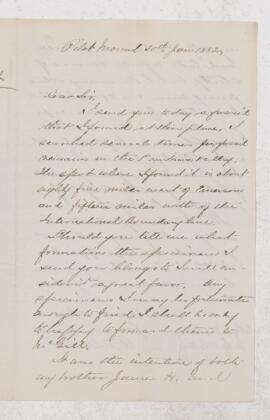 Pilot Mound 20th Jan 1882,
Dear Sir,
I send you to day a fossil
that I found, at this place, I
searched several times for fossil
remains in the Pembina valley,
The spot where I found it is about
eighty five miles west of Emerson
and fifteen miles north of the
International boundary line.
Should you tell me what
formation the specimen I
send you belongs to I will con-
sider it a great favor. Any
specimens I may be fortunate
enough to find I shall be only
to happy to forward them to
McGill.
It was the intention of both
my brother James H. and